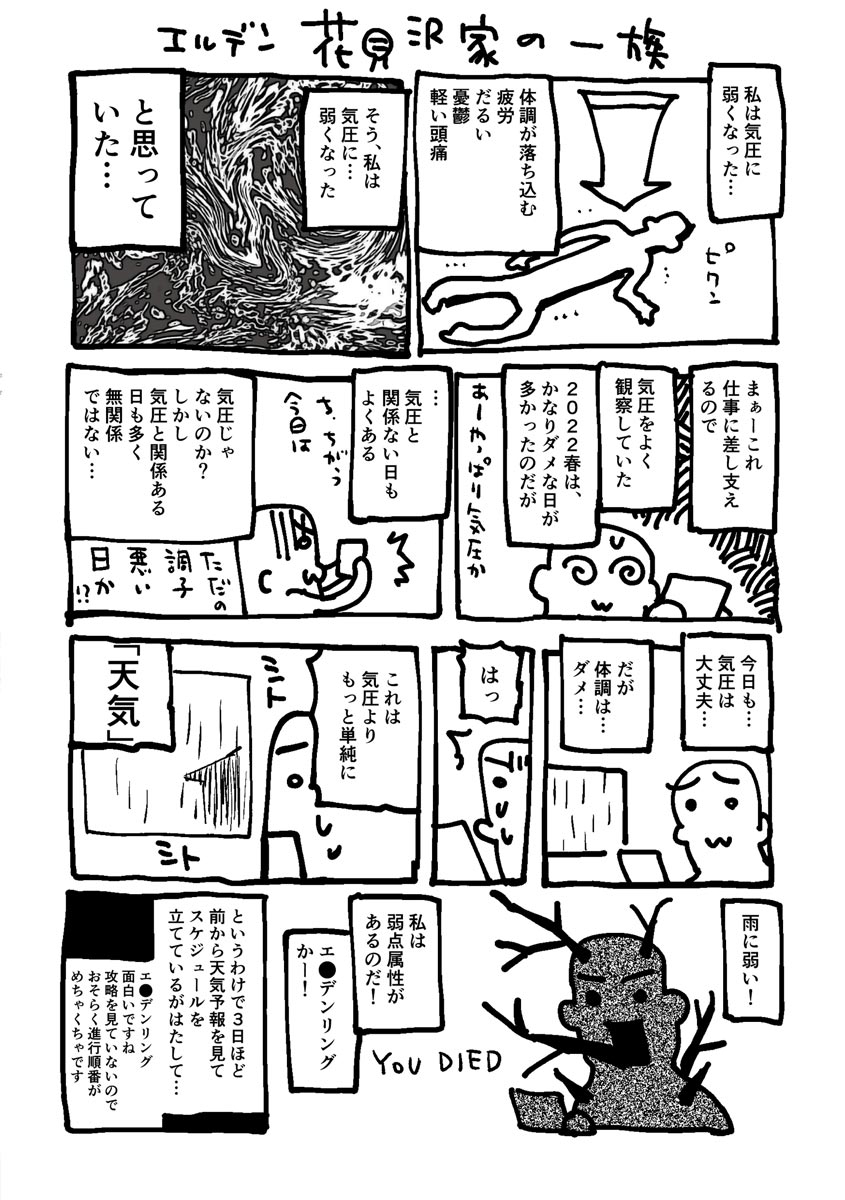 エルデン 花見沢家の一族
私は気圧に
弱くなった…
体調が落ち込む
疲労
だるい
憂鬱
軽い頭痛
ピクン
そう、私は
気圧に…
弱くなった
と思って
いた…
まぁーこれ
仕事に差し支え
るので
気圧をよく
観察していた
2022春は、
かなりダメな日が
多かったのだが
あーやっぱり気圧か
…
気圧と
関係ない日も
よくある
ち、ちがう
今日は
気圧じゃ
ないのか？
しかし
気圧と関係ある
日も多く
無関係
ではない…
ただの
調子
悪い
日か
!?
今日も…
気圧は
大丈夫…
だが
体調は…
ダメ…
はっ
これは
気圧より
もっと単純に
シト
シト
「天気」
雨に弱い！
YOU DIED
私は
弱点属性が
あるのだ！
エ●デンリング
かー！
というわけで３日ほど
前から天気予報を見て
スケジュールを
立てているがはたして…
エ●デンリング
面白いですね
攻略を見ていないので
おそらく進行順番が
めちゃくちゃです